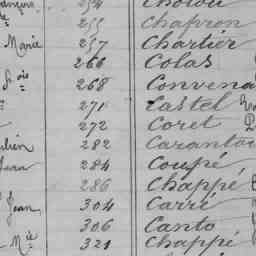 254 Cholou
255 Chapron
Marie 257 Chartier
266 Colas
Fois 268 Convena
271 Castel
272 Coret
282 Carantou
Jean 284 Coupé
286 Chappé
Jean 304 Carré
306 Canto
Mie 321 Chappé